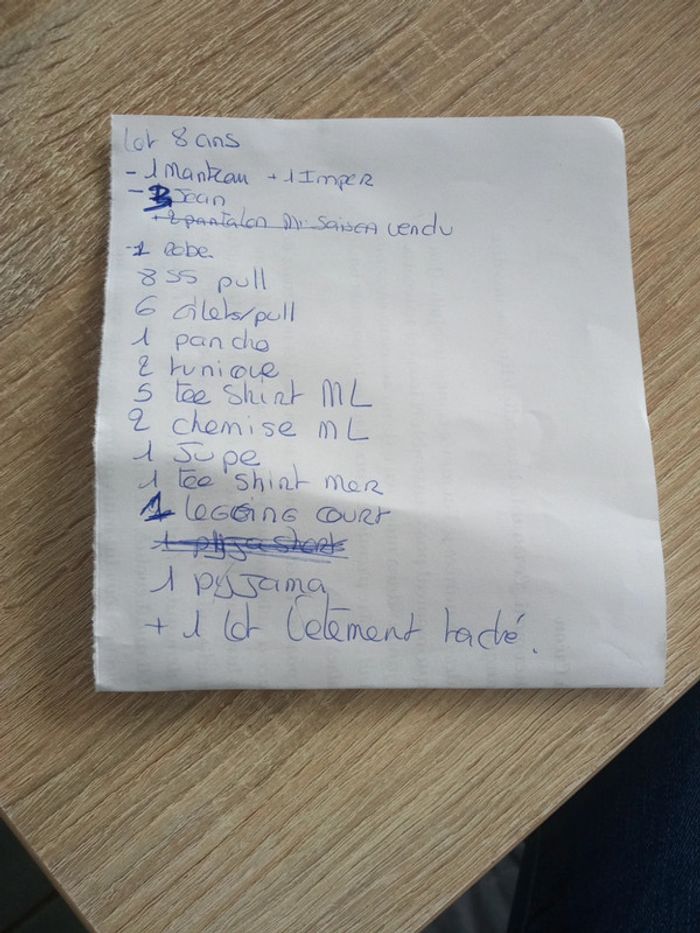 lot 8 ans
- 1 Manteau + 1 Imper
- 3 Jean
+ 2 pantalon Mi Saison vendu
- 1 Robe
8 SS pull
6 Gilets/pull
1 poncho
2 tunique
5 tee Shirt ML
2 chemise ML
1 Jupe
1 tee shirt mer
1 LEGGING COURT
1 pyja short
1 pyjama
+ 1 lot vêtement taché.